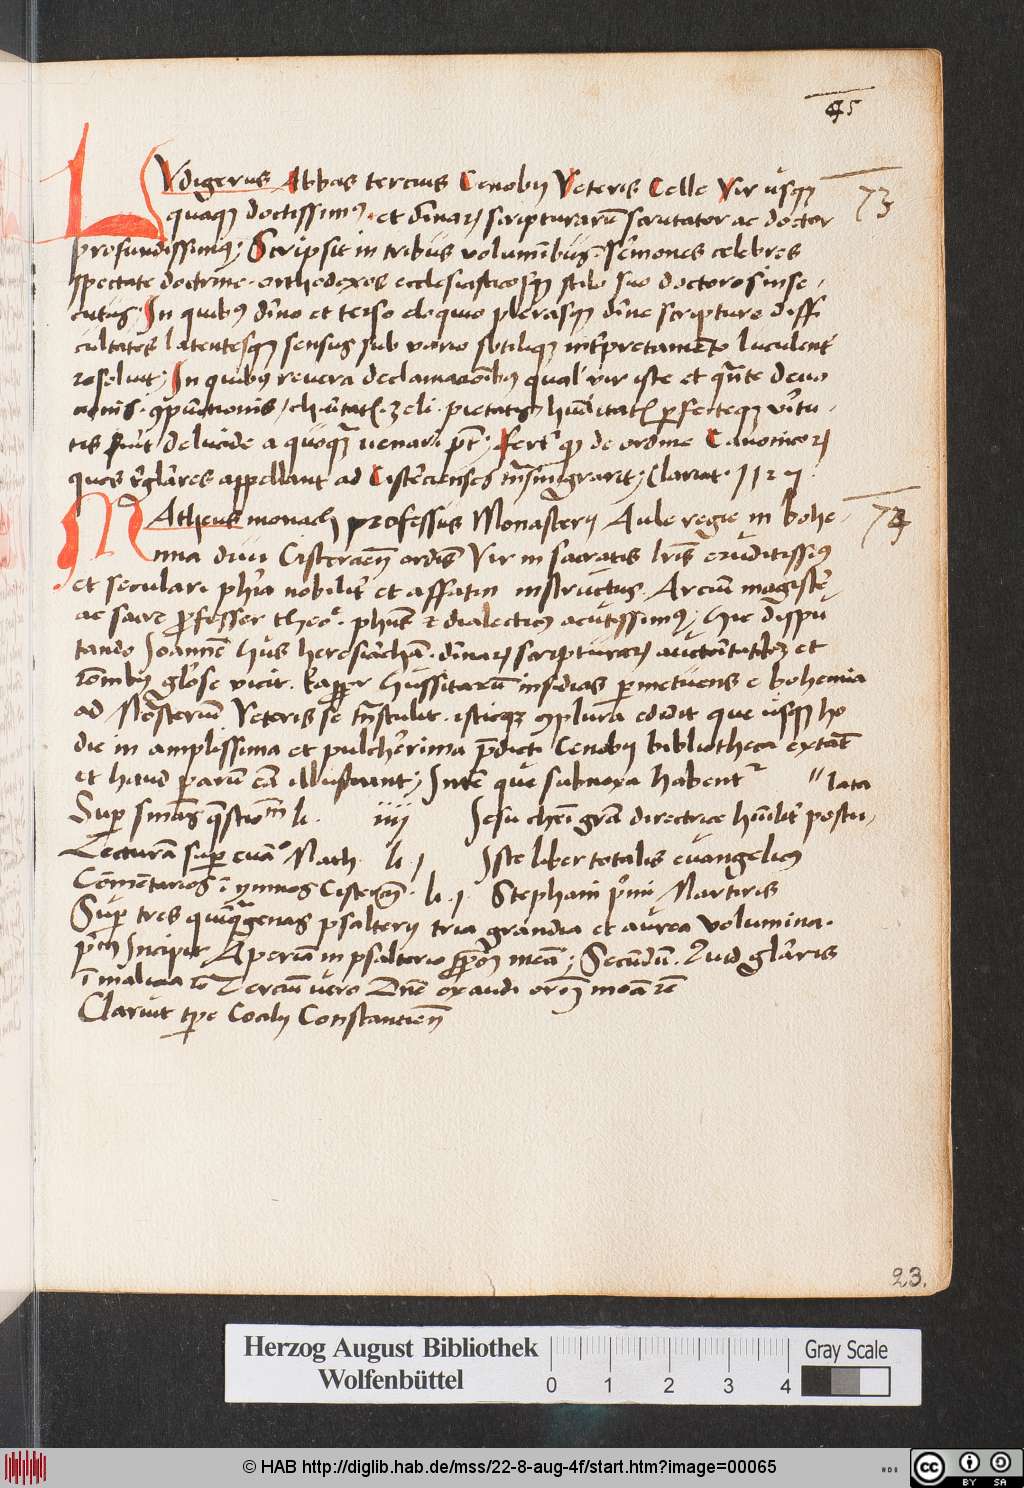 45
LVdigerus Abbas tercius Cenobij Veteris Celle Vir usq3
quaq3 doctissimus. et diuinarum scripturarum scrutator ac doctor
profundissimus; Scripsit in tribus voluminibus. sermones celebres
spectate doctrine. orthodoxos ecclesiasticosq3 stilo suo doctores inse-
cutus. In quibus diuino et terso eloquio plerasq3 diuine scripture diffi
cultates latentesq3 sensus sub vario subtiliq3 interpretamento luculenter
resoluit; In quibus reuera declamacionibus qualis vir iste et quante deuo
cionis. conpunctionis / charitatis. zeli. pietatis humilitatis perfecteq3 virtu-
tis fuerit delucide a quoquam venari potest; Fertur quod de ordine Canonicorum
quos regulares appellant ad Cistercienses transmigrarit; Claruit. 1127.
73
MAtheus monachus professus Monasterij Aule regie in bohe-
mia diui Cisterciensis ordinis Vir in sacratis literis eruditissimus
et seculari philosophia nobiliter et affatim instructus. Arcium magister
ac sacre professor theologie. philosophus et dialecticus acutissimus; Hic dispu
tando Joannem Hus heresiarcham. diuinarum scripturarum auctoritatibus et
racionibus gloriose vicit. Hussitarum insidias permetuens e bohemia
ad Monasterium Veteris se transtulit. isticq3 conplura edidit que usq3 ho
die in amplissima et pulcherrima predicti Cenobij bibliotheca extant
et haud parum eam illustrant; Inter que subnoxa habentur
74
Super sentencias questionum li. iiij Jesu christi gratia directrice humiliter postu- // lata
Lecturam super euangelio Math. li. j Iste liber totalis euangelicus
Commentarios in ymnos Cistercien. li. j. Stephani primi Martiris
Super tres quinquagenas psalterij tria grandia et aurea volumina.
primum Incipit Aperiam in psalterio propositionem meam; Secundum. Quid gloriaris
in malicia etc Tercium vero Domine exaudi orationem meam etc
Claruit tempore Concilij Constancien
23.
Herzog August Bibliothek
Wolfenbüttel
0 1 2 3 4
Gray Scale
© HAB http://diglib.hab.de/mss/22-8-aug-4f/start.htm?image=00065
cc BY SA